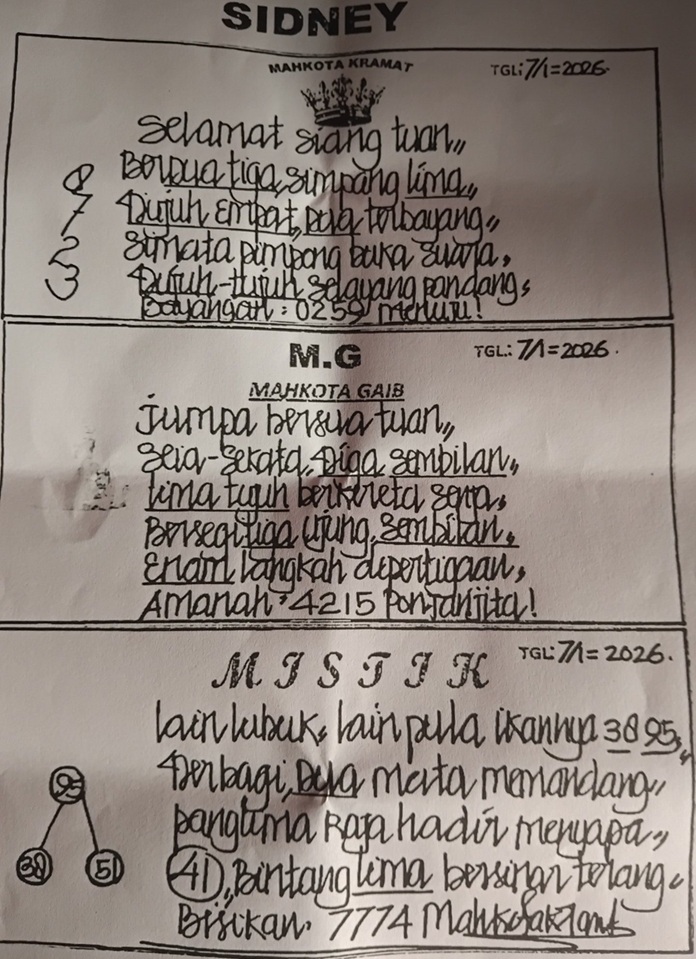 SIDNEY
MAHKOTA KRAMAT
TGL: 7/1=2026.
Selamat siang tuan,,
8 Berdua tiga, simpang lima,,
7 Tujuh Empat, dua terbayang,,
2 Simata pimpong buka suara,
3 Tujuh-tujuh selayang pandang,
Bayangan: 0259 menuju!
M.G
TGL: 7/1=2026.
MAHKOTA GAIB
Jumpa bersua tuan,,
Seia-Sekata, Tiga sembilan,,
lima tujuh berkereta senja,
Bersegi tiga ujung, sembilan,
Enam langkah dipertigaan,
Amanah: 4215
MISTIK
TGL: 7/1=2026.
lain lubuk, lain pula ikannya 38 95,,
Terbagi, Dua mata memandang,,
panglima Raja hadir menyapa,,
41,, Bintang lima bersinar terang,
Bisikan: 7774
95
38 51